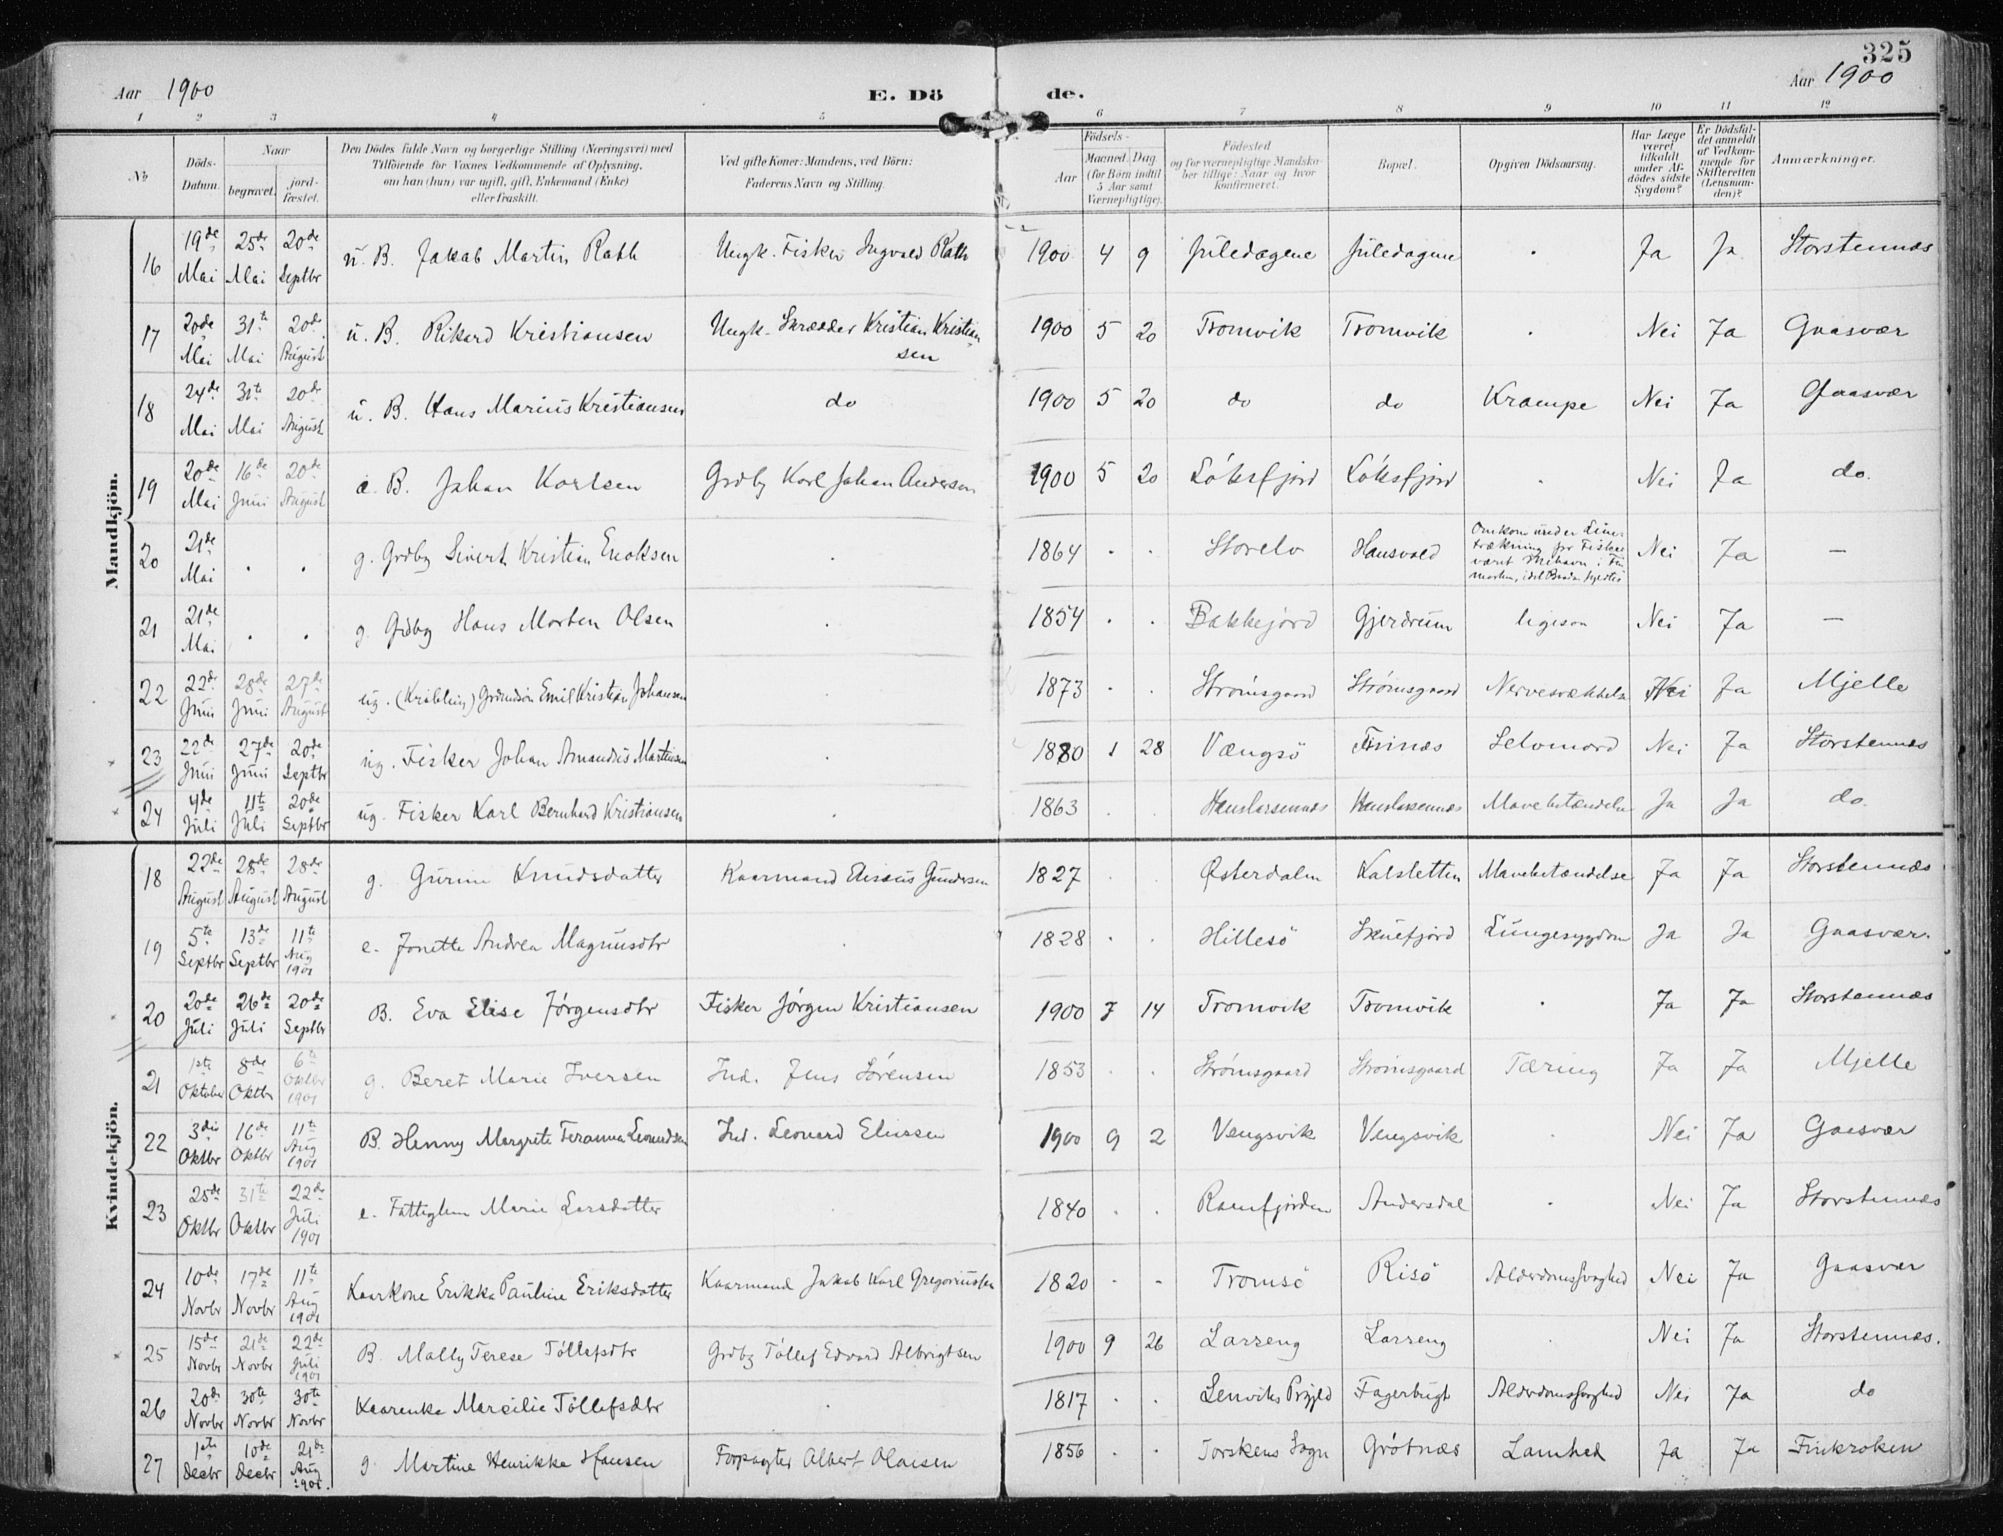 325
Aar 1900 E. Dö de. Aar 1900
1 2 3 4 5 6 7 8 9 10 11 12
No Döds-Datum. Naar begravet. jordfæstet. Den Dödes fulde Navn og borgerlige Stilling (Næringsvei) med Tilföiende for Voxnes Vedkommende af Oplysning, om han (hun) var ugift, gift, Enkemand (Enke) eller fraskilt. Ved gifte Koner: Mandens, ved Börn: Faderens Navn og Stilling. Födsels- Aar Maaned. Dag. (for Börn indtil 5 Aar samt Værnepligtige). Födested og for værnepligtige Mandskaber tillige: Naar og hvor konfirmeret. Bopæl. Opgiven Dödsaarsag. Har Læge været tilkaldt under Afdödes sidste Sygdom? Er Dödsfaldet anmeldt af Vedkommende for Skifteretten (Lensmanden)? Anmærkninger.
Mandkjön.
16 19de Mai 25de Mai 20de Septbr u. B. Jakob Martin Rath Ungk. Fisker Ingvald Rath 1900 4 9 Juledagene Juledagene . Ja Ja Storstennæs
17 20de Mai 31te Mai 20de August u. B. Rikard Kristiansen Ungk. Skrædder Kristian Kristiansen 1900 5 20 Tromvik Tromvik . Nei Ja Gaasvær
18 24de Mai 31te Mai 20de August u. B. Hans Marius Kristiansen do 1900 5 20 do do Krampe Nei Ja Gaasvær
19 20de Mai 16de Juni 20de August æ. B. Johan Karlsen Grdby Karl Johan Anderson 1900 5 20 Löksfjord Löksfjord . Nei Ja do.
20 21de Mai . . g. Grdby Sivert Kristian Enoksen . 1864 . . Storelv Hansvold Omkom under Linetrækning for Fiskeværet i Nei Ja —
21 21de Mai . . g. Grdby Hans Morten Olsen . 1854 . . Bakkejord Gjerdrum ligesaa Nei Ja —
22 22de Juni 28de Juni 27de August ug. (Krøbling) Grdmdsøn Emil Kristian Johansen . 1873 . . Strömsgaard Strømsgaard Nervesvækkelse Nei Ja Mjelle
23 22de Juni 27de Juni 20de Septbr ug. Fisker Johan Amandus Martinsen . 1880 1 28 Vængsö Finnæs Selvmord Nei Ja Storstennæs
24 4de Juli 11te Juli 20de Septbr ug. Fisker Karl Bernhard Kristiansen . 1863 . . Hanslarsennæs Hanslarsennæs Mavebetændelse Ja Ja do.
Kvindekjön.
18 22de August 28de August 28de August g. Gurine Knudsdatter Kaarmand Gundersen 1827 . . Østerdalen Kalsletten Mavebetændelse Ja Ja Storstennæs
19 5te Septbr 13de Septbr 11te Aug 1901 e. Jonette Andrea Magnusdtr . 1828 . . Hillesö Skulsfjord Lungesygdom Ja Ja Gaasvær.
20 20de Juli 26de Juli 20de Septbr B. Eva Elise Jørgensdtr Fisker Jørgen Kristiansen 1900 7 14 Tromvik Tromvik . Ja Ja Storstennæs
21 1ste Oktober 8de Oktbr 6te Oktbr 1901 g. Beret Marie Iversen Ind. Jens Sörensen 1853 . . Strømsgaard Strömsgaard Tæring Ja Ja Mjelle
22 3die Oktbr 16de Oktbr 11te Aug 1901 B. Henny Margrete Leonardsen Ind. Leonard Eliassen 1900 9 2 Vengsvik Vengsvik . Nei Ja Gaasvær
23 25de Oktbr 31te Oktbr 22de Juli 1901 e. Fattiglem Marie Larsdatter . 1840 . . Ramfjorden Andersdal . Nei Ja Storstennæs
24 10de Novbr 17de Novbr 11te Aug 1901 Kaarkone Erikka Pauline Eriksdatter Kaarmand Jakob Karl Gregoriussen 1820 - - Tromsö Risö Alderdomssvaghed Nei Ja Gaasvær
25 15de Novbr 21de Novbr 22de Juli 1901 B. Mally Terese Töllefsdtr Grdby Töllef Edvard Albrigtsen 1900 9 26 Larseng Larseng . Nei Ja Storstennæs.
26 20de Novbr 30te Novbr 30te Novbr Kaarenke Marcilie Töllefsdtr . 1817 . . Lenviks Prgjld Fagerbugt Alderdomssvaghed Nei Ja do
27 1ste Decbr 10de Decbr 21de Aug 1901. g. Martine Henrikke Hansen Forpagter Albert Olaisen 1856 . . Torskens Sogn Grötnæs Lamhed Ja Ja Finkroken